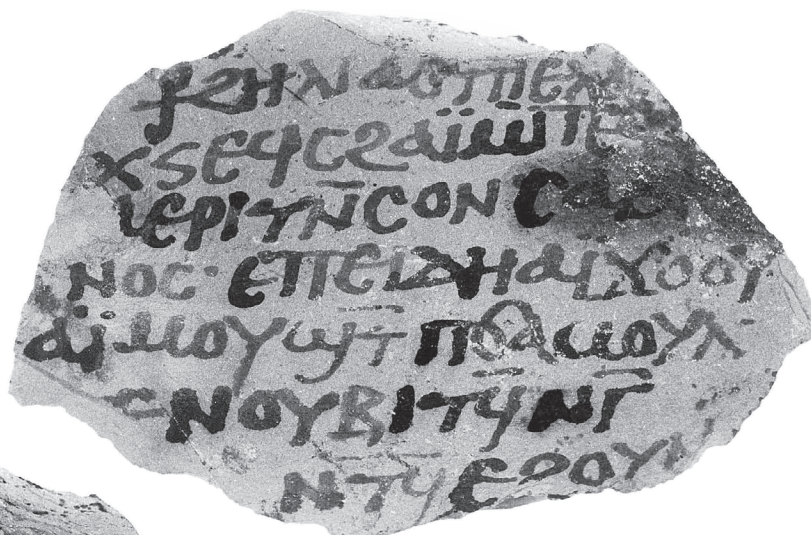 ⳁϩⲏⲗⲓⲁⲥⲡⲉⲗ
ⲭⲋⲉϥⲥϩⲁⲓ̈ⲙ̄ⲡⲉ
ⲙⲉⲣⲓⲧⲛ̄ⲥⲟⲛ
ⲛⲟⲥ· ⲉⲡⲉⲓⲇⲏⲁⲓ̈ϫⲟⲟⲩ
ⲁⲓ̈ⲙⲟⲩϣⲧ̄ ⲡϭⲁⲙⲟⲩⲗ
ⲥⲛⲟⲩⲃ ⲓⲧϥ̄ ⲛⲅ̄
ⲛⲧϥ̄ ⲉϩⲟⲩⲛ